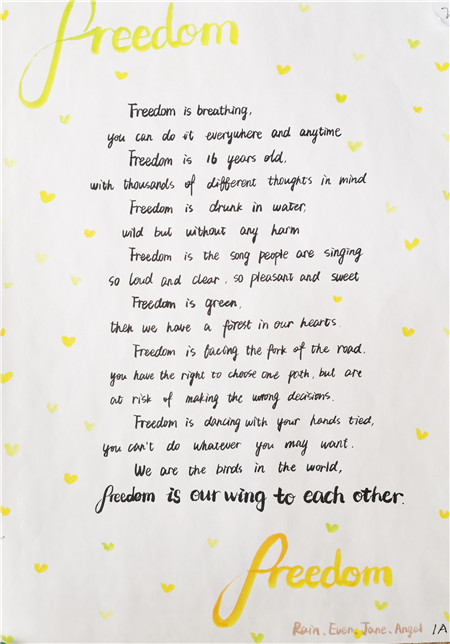 freedom
Freedom is breathing,
you can do it everywhere and anytime
Freedom is 16 years old,
with thousands of different thoughts in mind
Freedom is drunk in water,
wild but without any harm
Freedom is the song people are singing
so loud and clear, so pleasant and sweet
Freedom is green,
then we have a forest in our hearts.
Freedom is facing the fork of the road.
you have the right to choose one path, but are
at risk of making the wrong decisions.
Freedom is dancing with your hands tied,
you can't do whatever you may want.
We are the birds in the world,
freedom is our wing to each other.
freedom
Rain. Even. Jane. Angel 1A